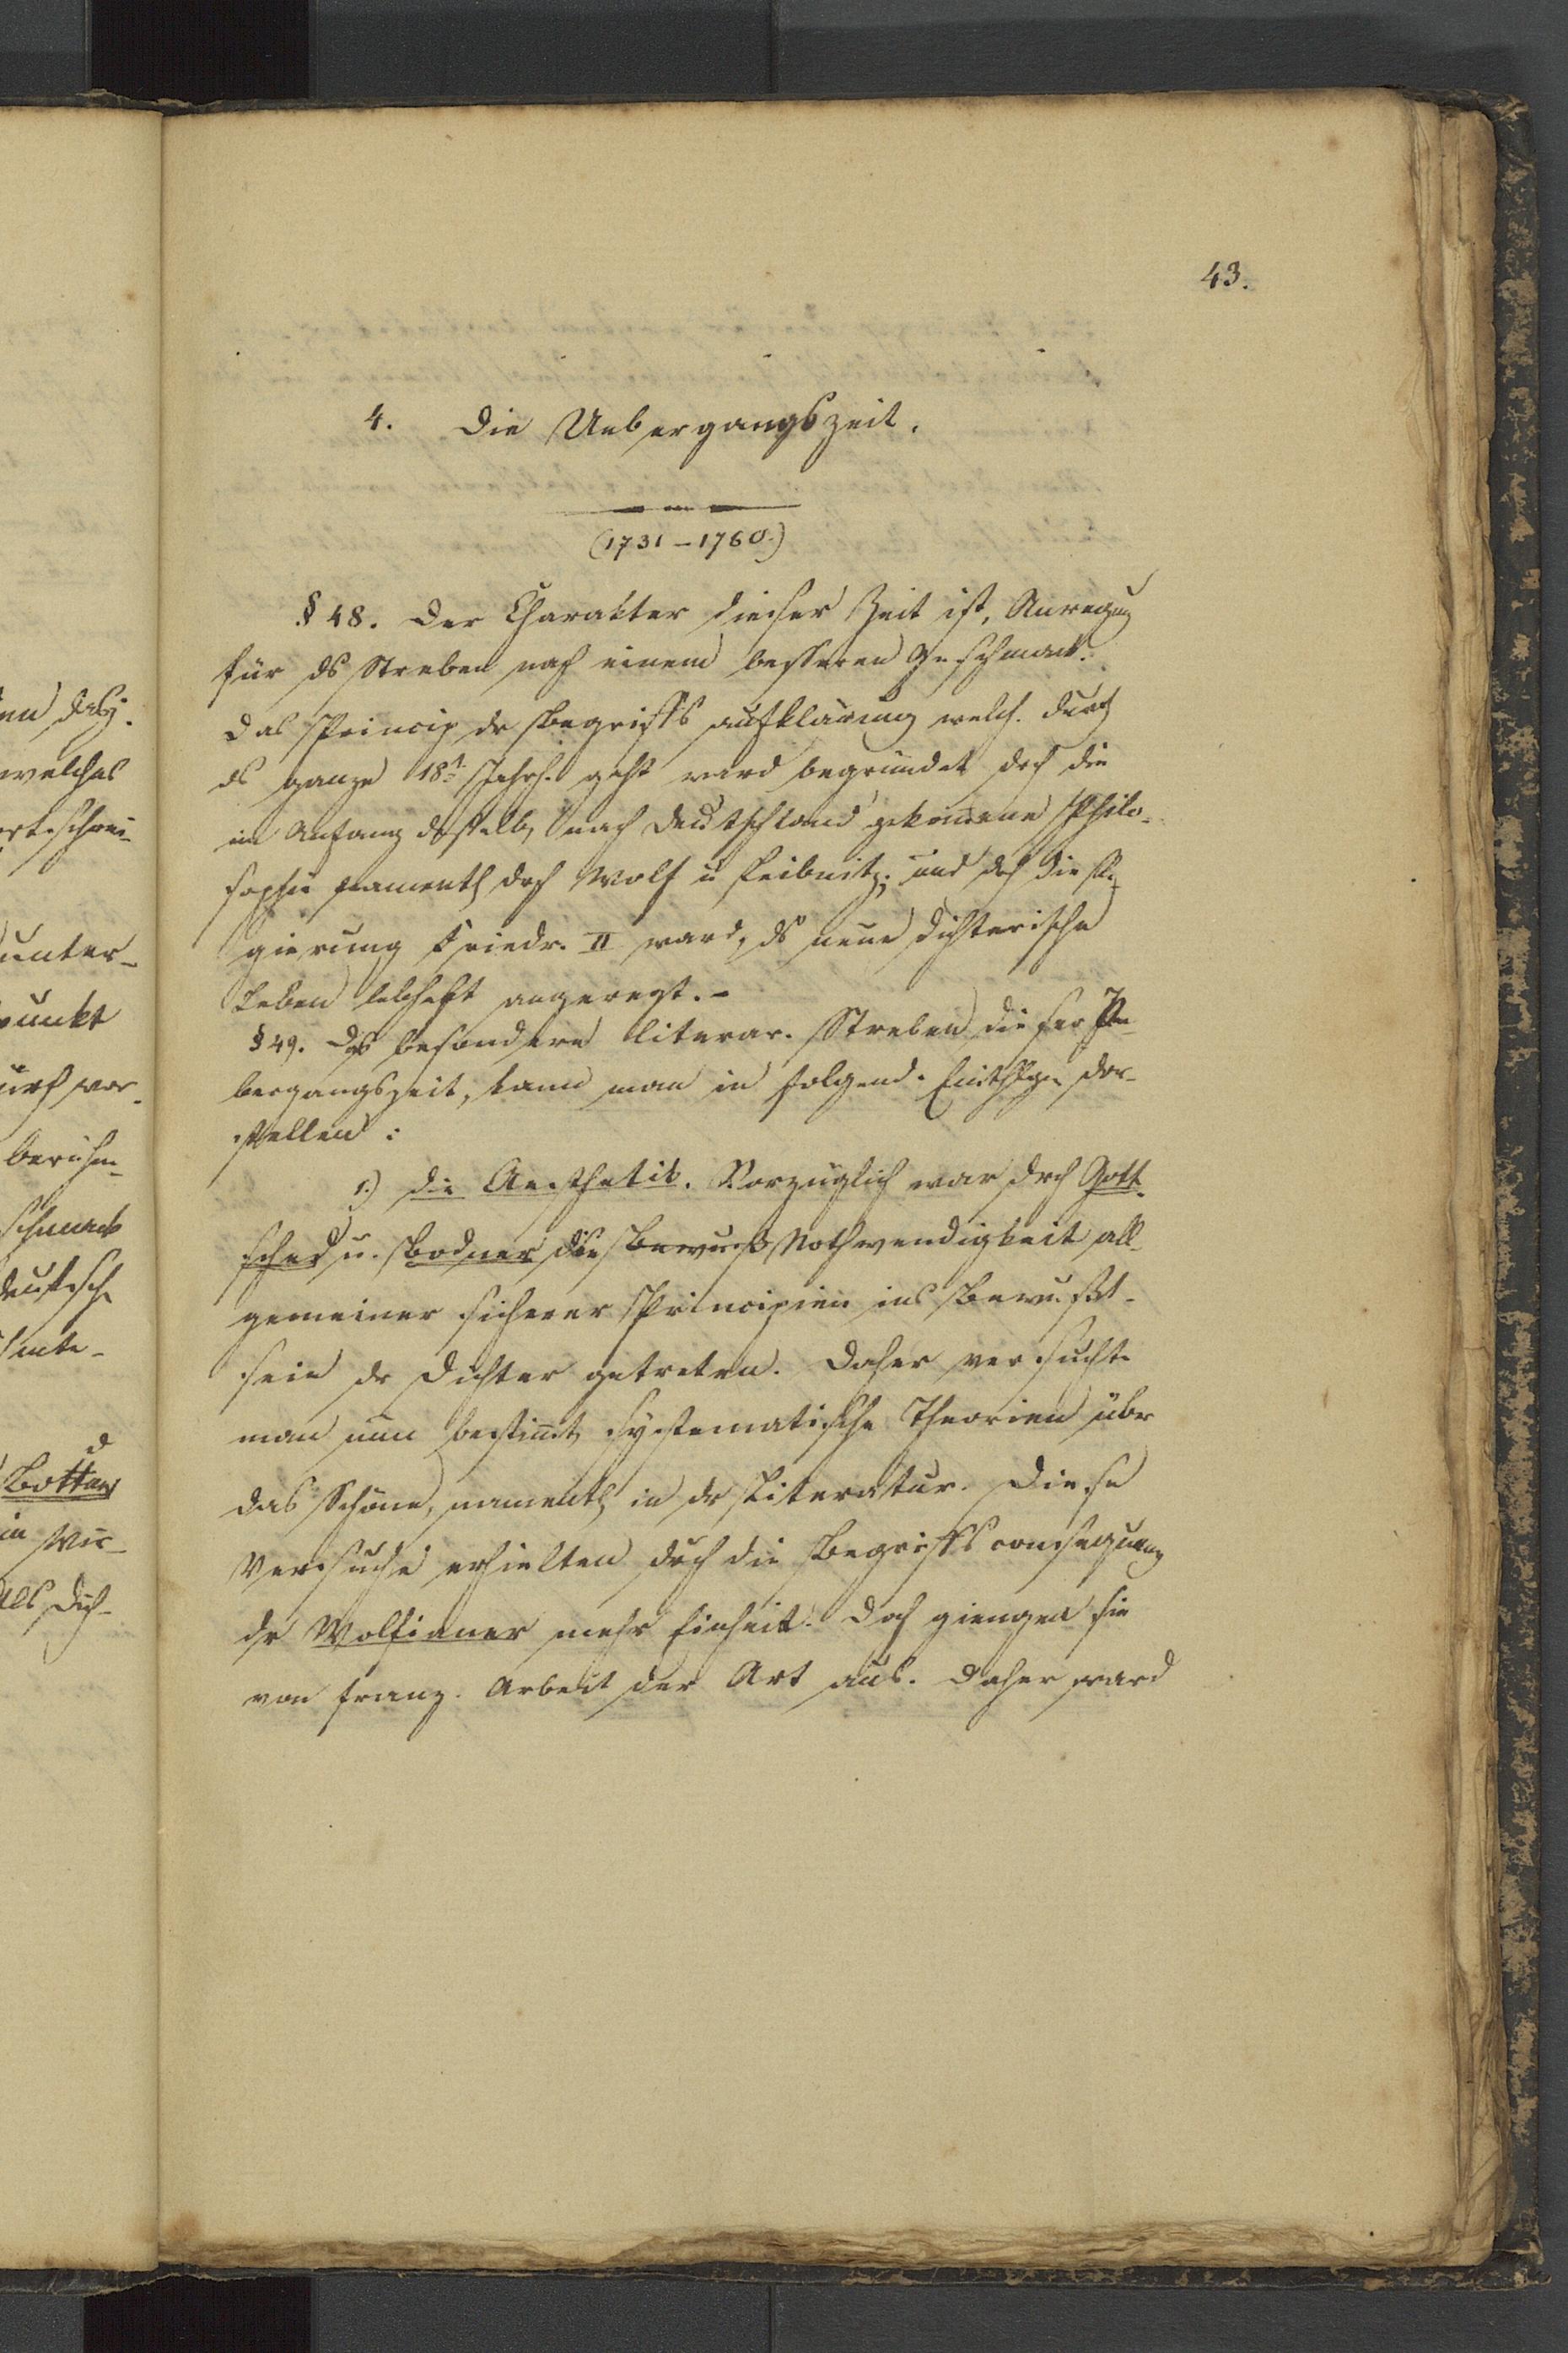 43.
4. Die Uebergangszeit.
(1731-1760.)
§ 48. Der Charakter dieser Zeit ist, Anregung
für ds Streben nach einem besseren Geschmack.
Das Princip dr Begriffsaufklärung welch. durch
ds ganze 18t. Jahrh. geht ward begründet dch die
im Anfang desselb. nach Deutschland gekommene Philo-
sophie namentl dch Wolf u Leibnitz; und dch die Re-
gierung Friedr. II ward ds neue dichterische
Leben lebhaft angeregt. -
§ 49. Das besondere literar. Streben dieser Ue-
bergangszeit, kann man in folgend. dar-
stellen:
1.) die Aesthetik. Vorzüglich war drch Gott-
sched u. Bodmer die Bewuß Nothwendigkeit all-
gemeiner sicherer Principien ins Bewußt-
sein dr Dichter getreten. Daher versuchte
man nun bestimmt systematische Theorien übr
das Schöne, namentl in dr Literatur. Diese
Versuche erhielten dch die Begriffsconsequenz
dr Wolfianer mehr Einheit. Doch giengen sie
von franz. Arbeit der Art aus. Daher ward
welches
unter-
punkt
berühm-
schmack
deutsche
als Dich-